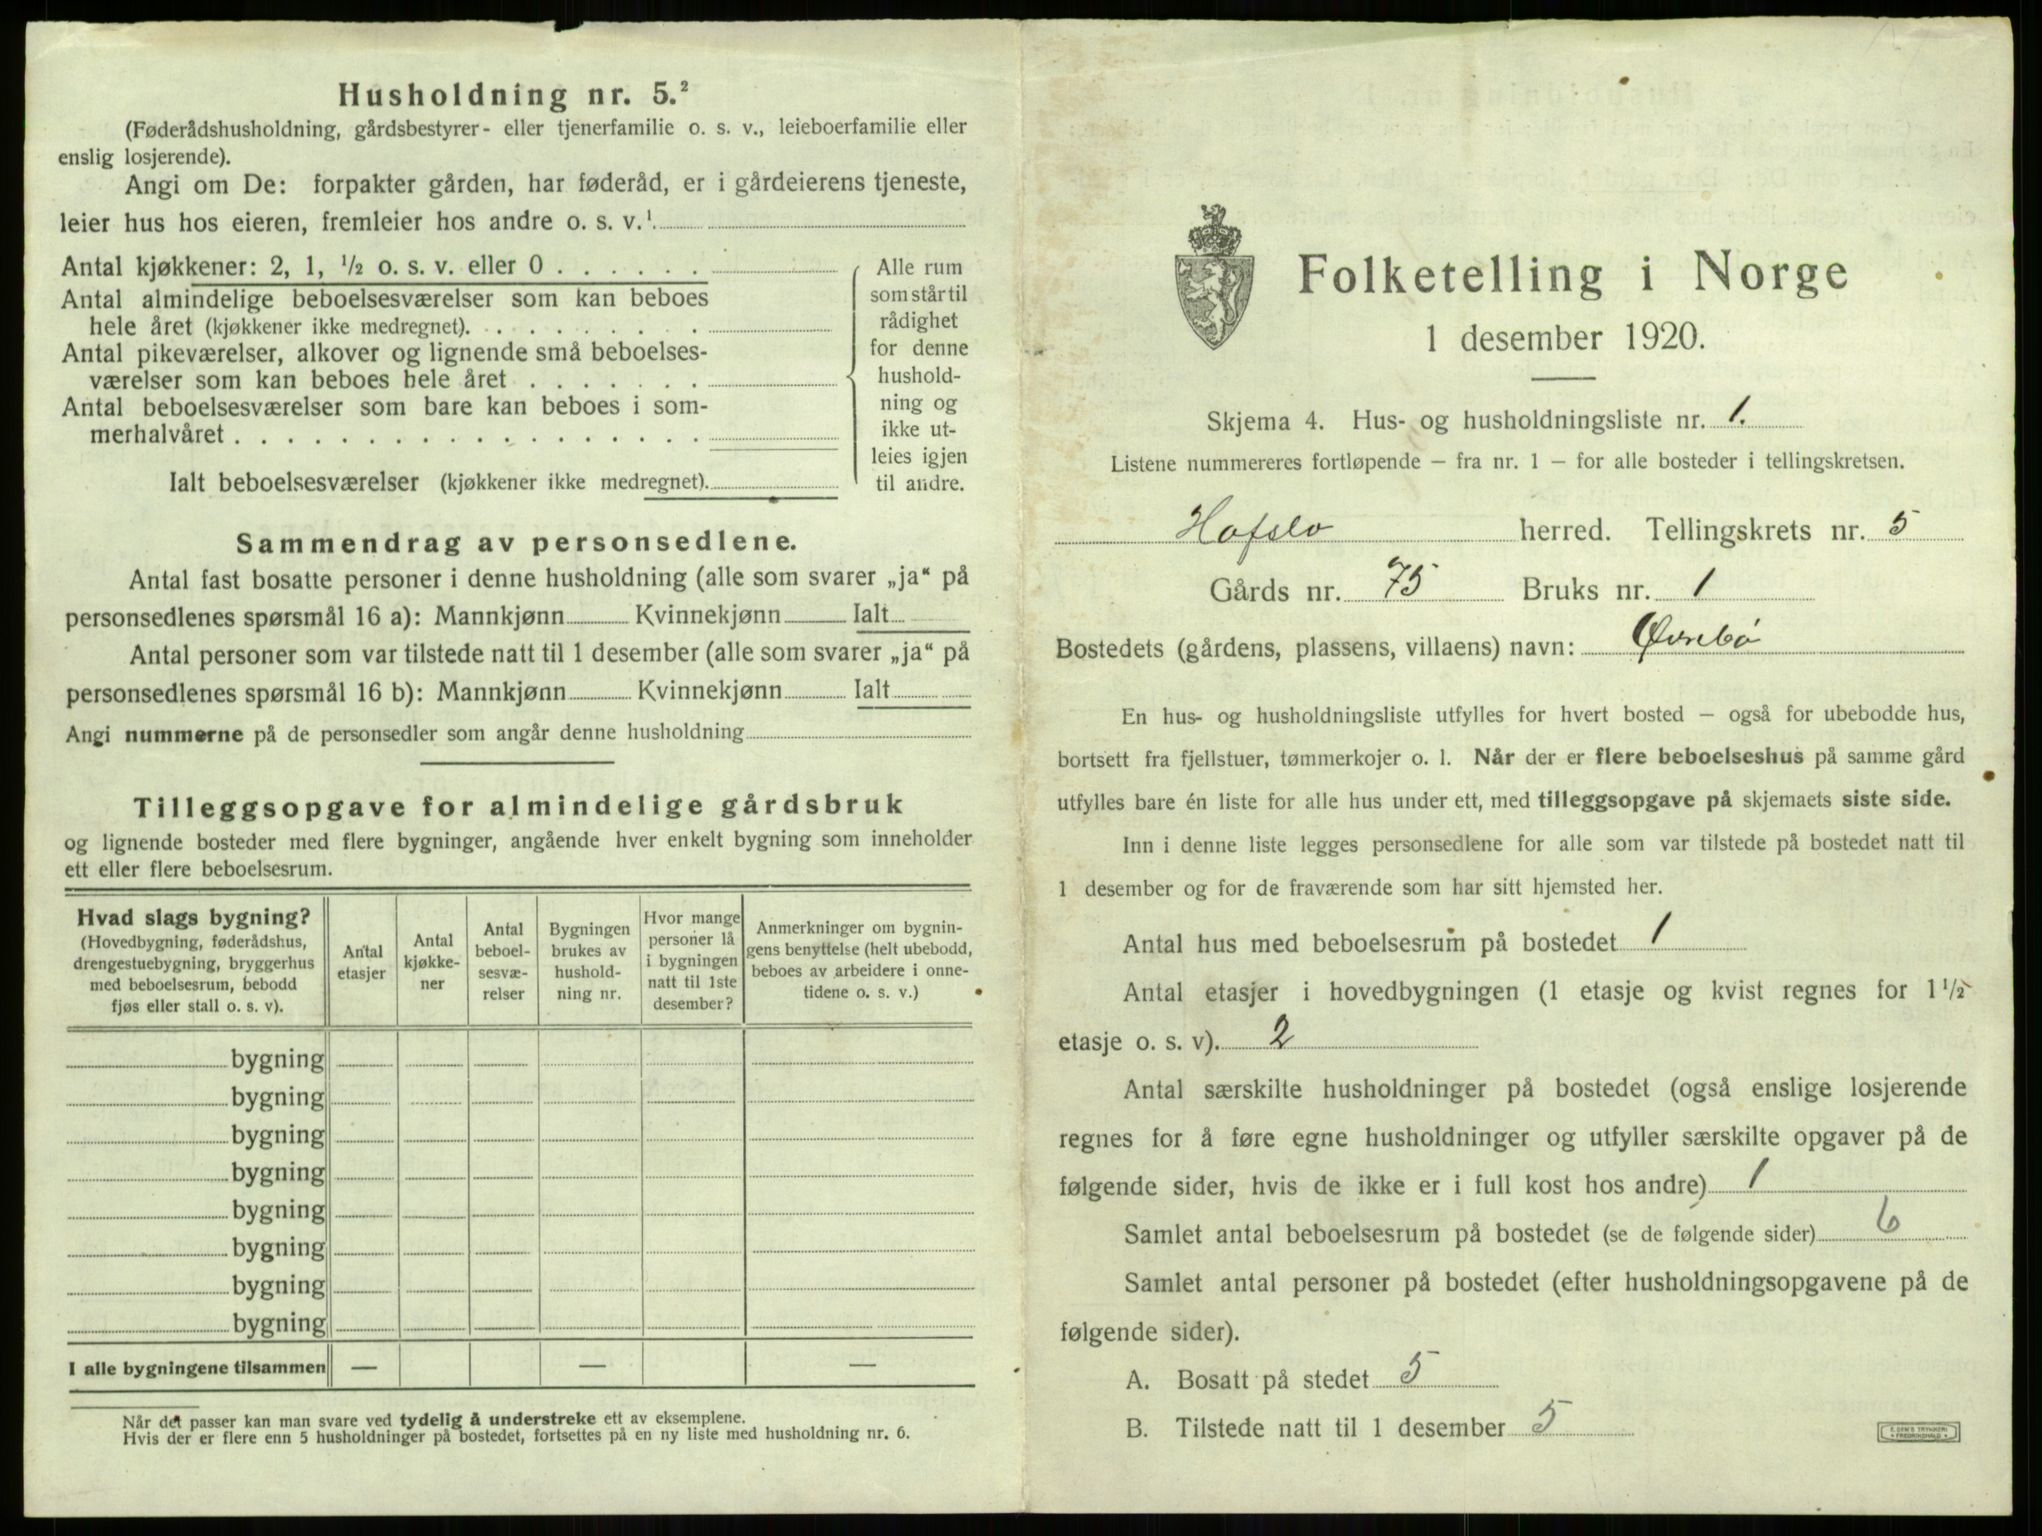 Husholdning nr. 5.²
(Føderådshusholdning, gårdsbestyrer- eller tjenerfamilie o. s. v., leieboerfamilie eller
enslig losjerende).
Angi om De: forpakter gården, har føderåd, er i gårdeierens tjeneste,
leier hus hos eieren, fremleier hos andre o. s. v.¹
Antal kjøkkener: 2, 1, ½ o. s. v. eller 0
Antal almindelige beboelsesværelser som kan beboes
hele året (kjøkkener ikke medregnet).
Antal pikeværelser, alkover og lignende små beboelses-
værelser som kan beboes hele året
Antal beboelsesværelser som bare kan beboes i som-
merhalvåret
Ialt beboelsesværelser (kjøkkener ikke medregnet).
Alle rum
som står til
rådighet
for denne
hushold-
ning og
ikke ut-
leies igjen
til andre.
Sammendrag av personsedlene.
Antal fast bosatte personer i denne husholdning (alle som svarer „ja“ på
personsedlenes spørsmål 16 a): Mannkjønn Kvinnekjønn Ialt
Antal personer som var tilstede natt til 1 desember (alle som svarer „ja“ på
personsedlenes spørsmål 16 b): Mannkjønn Kvinnekjønn Ialt
Angi nummerne på de personsedler som angår denne husholdning
Tilleggsopgave for almindelige gårdsbruk
og lignende bosteder med flere bygninger, angående hver enkelt bygning som inneholder
ett eller flere beboelsesrum.
Hvad slags bygning?
(Hovedbygning, føderådshus,
drengestuebygning, bryggerhus
med beboelsesrum, bebodd
fjøs eller stall o. s. v).
Antal
etasjer
Antal
kjøkke-
ner
Antal
beboel-
sesvæ-
relser
Bygningen
brukes av
hushold-
ning nr.
Hvor mange
personer lå
i bygningen
natt til 1ste
desember?
Anmerkninger om bygnin-
gens benyttelse (helt ubebodd,
beboes av arbeidere i onne-
tidene o. s. v.)
bygning
bygning
bygning
bygning
bygning
bygning
bygning
bygning
I alle bygningene tilsammen — — —
Når det passer kan man svare ved tydelig å understreke ett av eksemplene.
Hvis der er flere enn 5 husholdninger på bostedet, fortsettes på en ny liste med husholdning nr. 6.
Folketelling i Norge
1 desember 1920.
Skjema 4. Hus- og husholdningsliste nr. 1.
Listene nummereres fortløpende – fra nr. 1 – for alle bosteder i tellingskretsen.
Hafslo herred. Tellingskrets nr. 5
Gårds nr. 75 Bruks nr. 1
Bostedets (gårdens, plassens, villaens) navn: Øvrebø
En hus- og husholdningsliste utfylles for hvert bosted – også for ubebodde hus,
bortsett fra fjellstuer, tømmerkojer o. l. Når der er flere beboelseshus på samme gård
utfylles bare én liste for alle hus under ett, med tilleggsopgave på skjemaets siste side.
Inn i denne liste legges personsedlene for alle som var tilstede på bostedet natt til
1 desember og for de fraværende som har sitt hjemsted her.
Antal hus med beboelsesrum på bostedet 1
Antal etasjer i hovedbygningen (1 etasje og kvist regnes for 1½
etasje o. s. v). 2
Antal særskilte husholdninger på bostedet (også enslige losjerende
regnes for å føre egne husholdninger og utfyller særskilte opgaver på de
følgende sider, hvis de ikke er i full kost hos andre) 1
Samlet antal beboelsesrum på bostedet (se de følgende sider) 6
Samlet antal personer på bostedet (efter husholdningsopgavene på de
følgende sider).
A. Bosatt på stedet 5
B. Tilstede natt til 1 desember 5